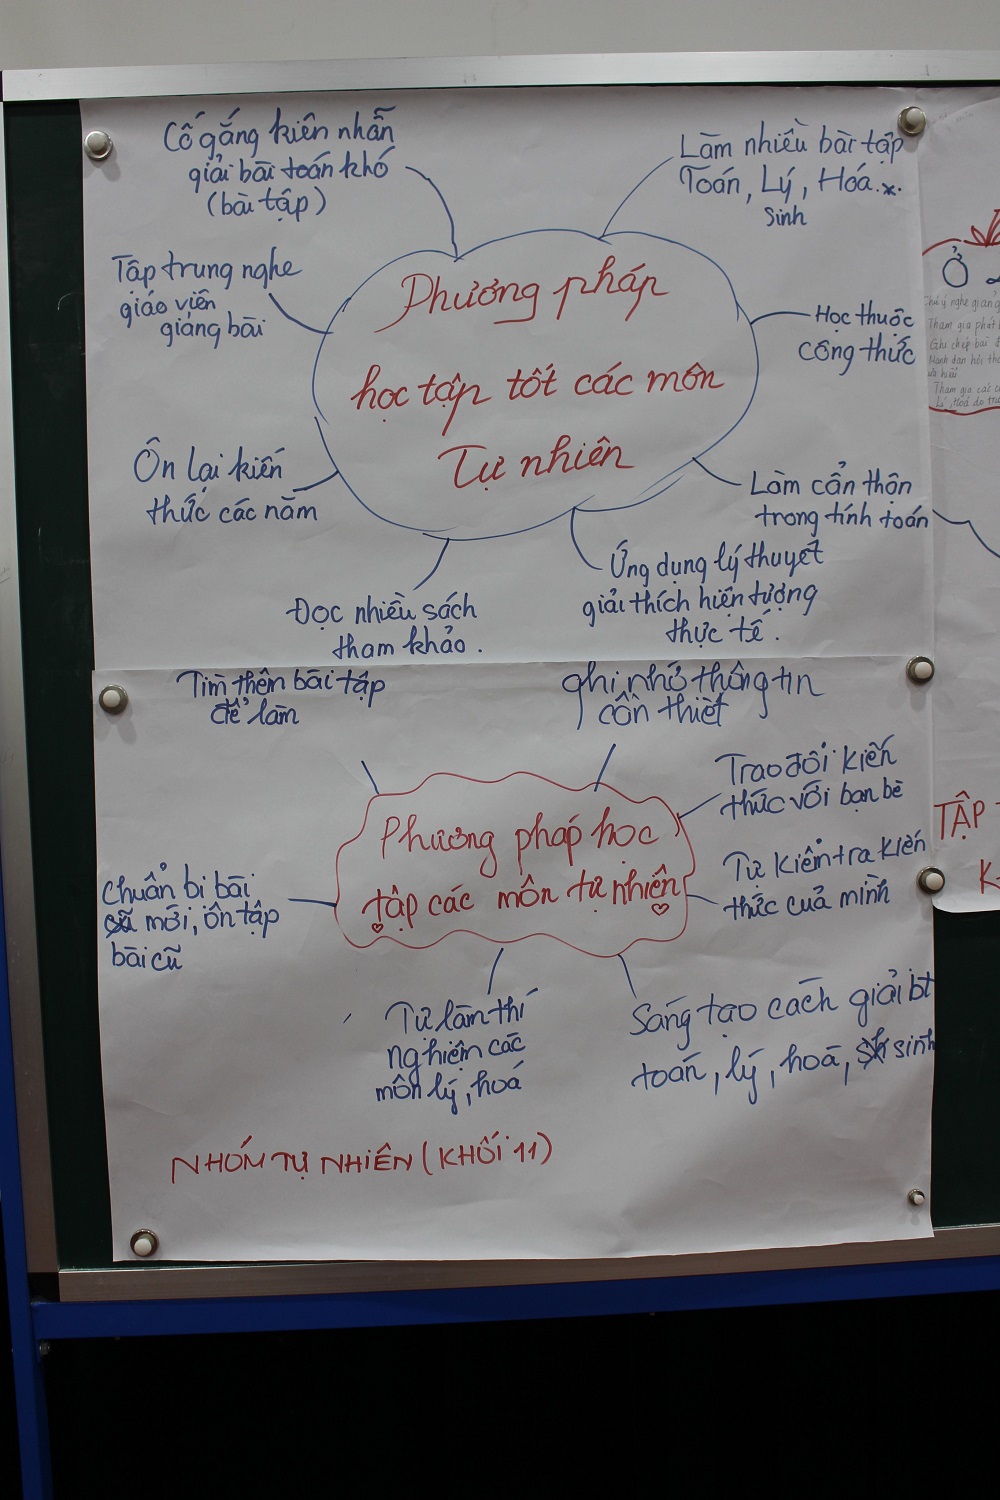 Cố gắng kiên nhẫn
giải bài toán khó
(bài tập)
Làm nhiều bài tập
Toán, Lý, Hóa...
Sinh
Tập trung nghe
giáo viên
giảng bài
Phương pháp
học tập tốt các môn
Tự nhiên
Học thuộc
công thức
Ôn lại kiến
thức các năm
Làm cẩn thận
trong tính toán
Đọc nhiều sách
tham khảo.
Ứng dụng lý thuyết
giải thích hiện tượng
thực tế.
Tìm thêm bài tập
để làm
ghi nhớ thông tin
cần thiết
Trao đổi kiến
thức với bạn bè
Phương pháp học
tập các môn tự nhiên
Tự kiểm tra kiến
thức của mình
Chuẩn bị bài
mới, ôn tập
bài cũ
Tự làm thí
nghiệm các
môn lý, hoá
Sáng tạo cách giải bt
toán, lý, hoá, sinh
NHÓM TỰ NHIÊN (KHỐI 11)
Ở
Chú ý nghe giảng
Tham gia phát
Ghi chép bài
Tham gia các
TẬP